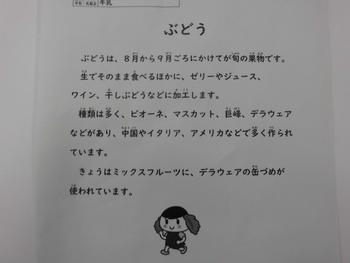 牛乳
ぶどう
ぶどうは、8月から9月ごろにかけてが旬の果物です。
生でそのまま食べるほかに、ゼリーやジュース、
ワイン、干しぶどうなどに加工します。
種類は多く、ピオーネ、マスカット、巨峰、デラウェア
などがあり、中国やイタリア、アメリカなどで多く作られ
ています。
きょうはミックスフルーツに、デラウェアの缶づめが
使われています。